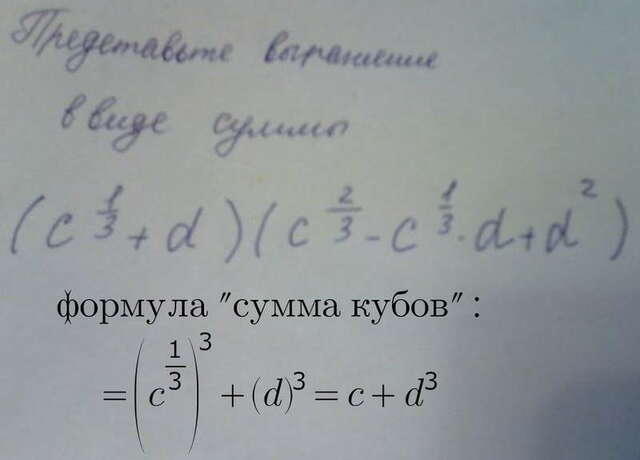 Представьте выражение
в виде суммы
(c^{1/3} + d)(c^{2/3} - c^{1/3} · d + d^2)
формула "сумма кубов":
= (c^{1/3})^3 + (d)^3 = c + d^3